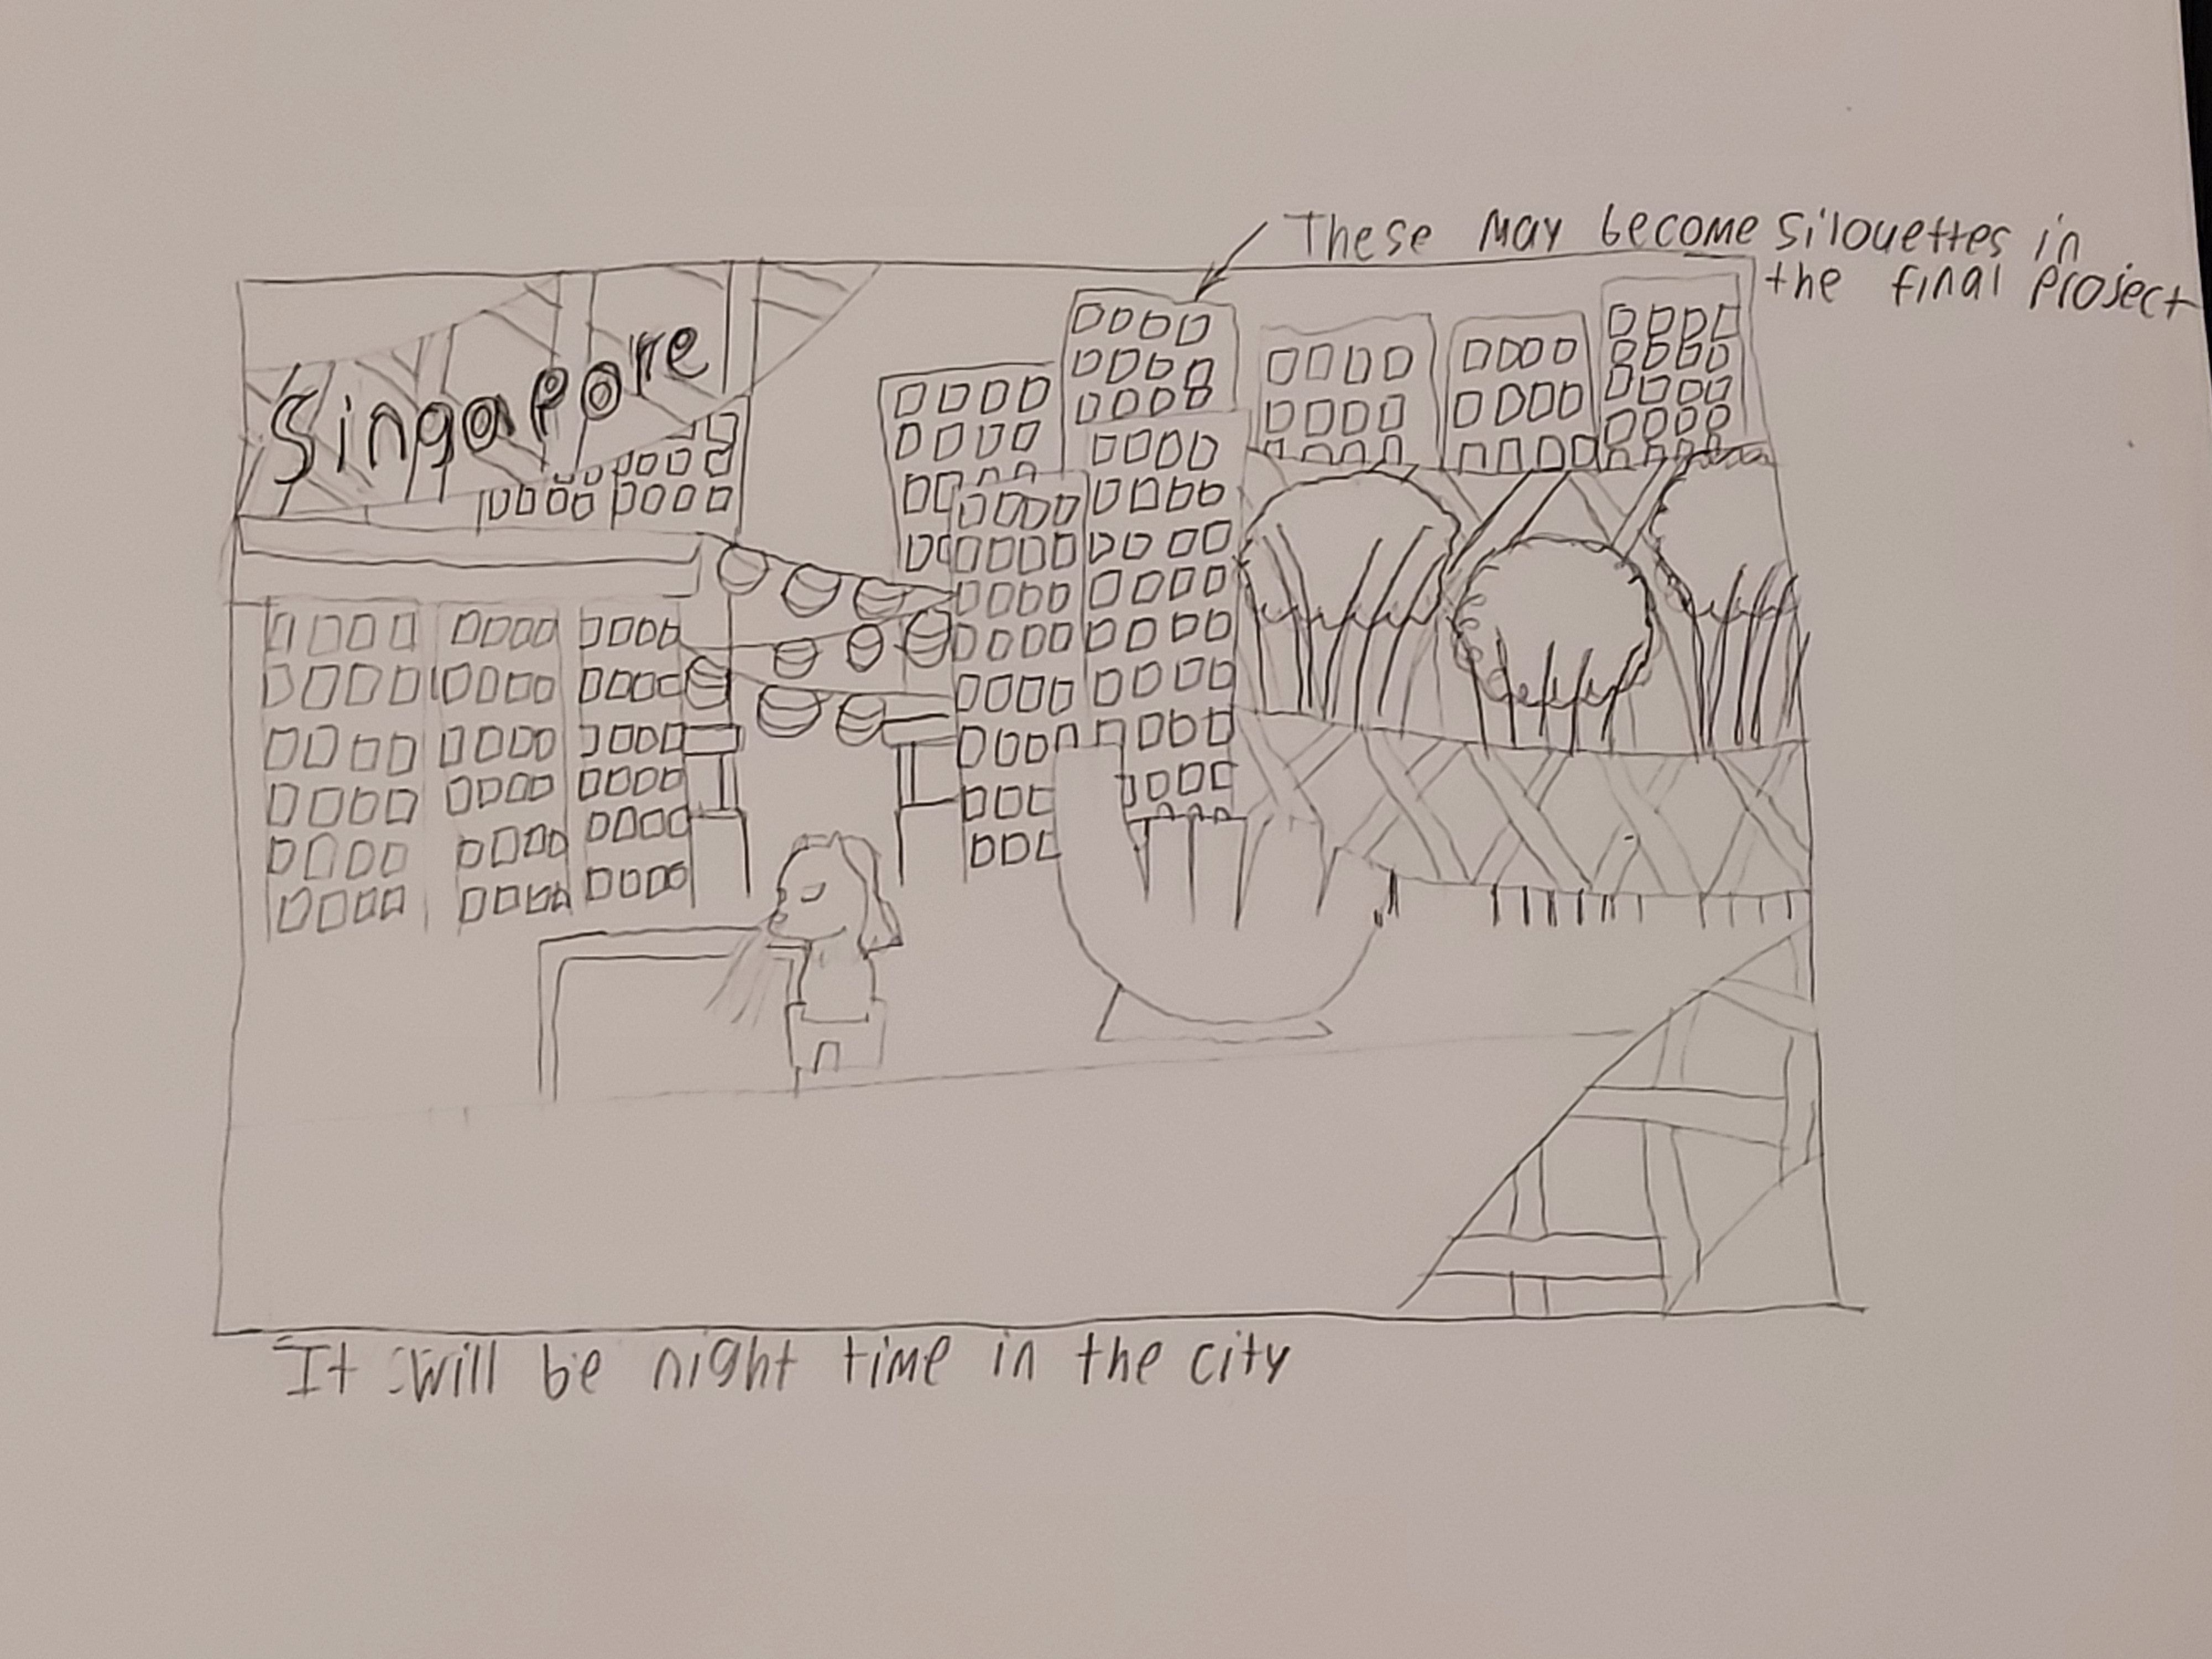 These may become silouettes in
the final project
Singapore
It will be night time in the city